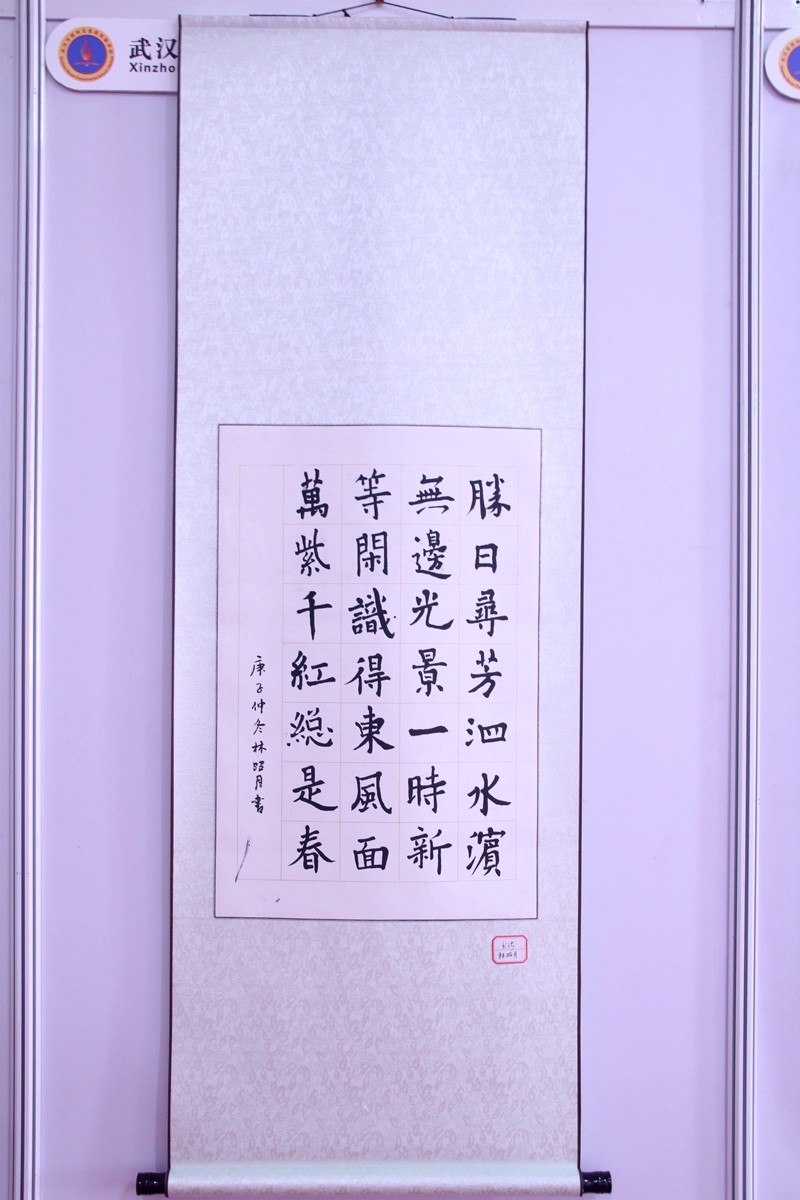 武汉
Xinzho
勝日尋芳泗水濵
無邊光景一時新
等閑識得東風面
萬紫千紅総是春
庚子仲冬林照月書
书法
林照月